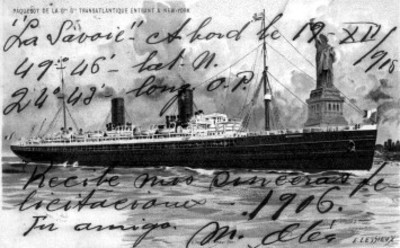 PAQUEBOT DE LA Cie Gle TRANSATLANTIQUE ENTRANT A NEW-YORK
"La Savoie" A bord le 19-XII/
1916
49°-46'- lat. N.
24°-43'- long. O.P.
Recibe mas sinceras fe-
licitaciones - 1906.
Tu amigo. M.